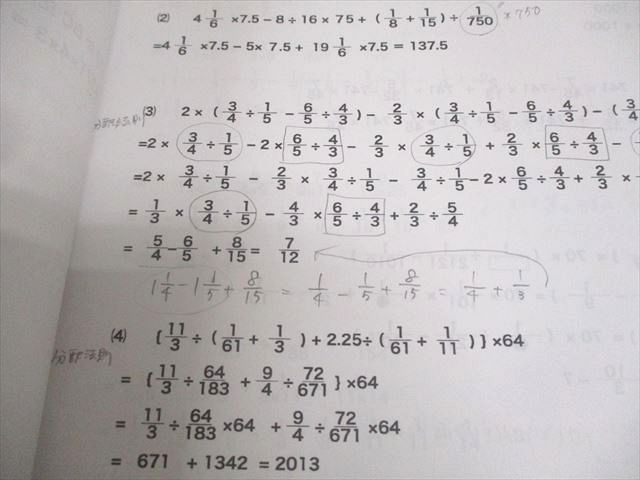 (2) 4 1/6 ×7.5－8÷16×75＋(1/8＋1/15)÷1/750 ×750
=4 1/6 ×7.5－5×7.5＋19 1/6 ×7.5＝137.5
分配法則 (3) 2×(3/4÷1/5－6/5÷4/3)－2/3×(3/4÷1/5－6/5÷4/3)－(3/4
=2×3/4÷1/5－2×6/5÷4/3－2/3×3/4÷1/5＋2/3×6/5÷4/3－
=2×3/4÷1/5－2/3×3/4÷1/5－3/4÷1/5－2×6/5÷4/3＋2/3×
=1/3×3/4÷1/5－4/3×6/5÷4/3＋2/3÷5/4
=5/4－6/5＋8/15＝7/12
1 1/4－1 1/5＋8/15＝1/4－1/5＋8/15＝1/4＋1/3
分配法則 (4) {11/3÷(1/61＋1/3)＋2.25÷(1/61＋1/11)}×64
={11/3÷64/183＋9/4÷72/671}×64
=11/3÷64/183×64＋9/4÷72/671×64
=671＋1342＝2013